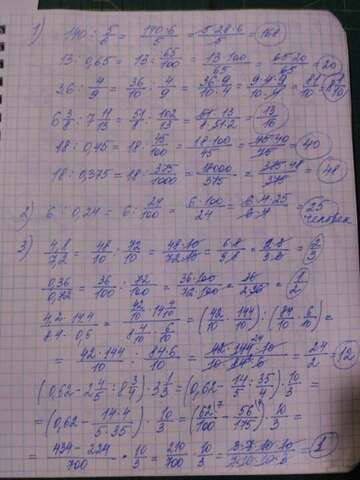 1) 140 : 5/6 = 140·6/5 = 5·28·6/5 = 168
13 : 0,65 = 13 : 65/100 = 13·100/65 = 65·20/65 = 20
36 : 4/9 = 36/10 · 9/4 = 36·9/10·4 = 9·4·9/10·4 = 81/10 = 8 1/10
6 3/8 : 7 11/13 = 51/8 : 102/13 = 51·13/8·51·2 = 13/16
18 : 0,45 = 18 : 45/100 = 18·100/45 = 45·40/45 = 40
18 : 0,375 = 18 : 375/1000 = 18000/375 = 375·48/375 = 48
2) 6 : 0,24 = 6 : 24/100 = 6·100/24 = 6·4·25/6·4 = 25 человек
3) 4,8/7,2 = 48/10 : 72/10 = 48·10/72·10 = 6·8/9·8 = 2·3/3·3 = 2/3
0,36/0,72 = 36/100 : 72/100 = 36·100/72·100 = 36/2·36 = 1/2
= 42·144/10 : 84·6/10 = 42·144·10/10·84·6 = 24/2 = 12
(0,62 - 2 4/5 : 8 3/4) · 3 1/3 = (0,62 - 14/5 : 35/4) · 10/3 =
= (0,62 - 14·4/5·35) · 10/3 = (62/100 - 56/175) · 10/3 =
= 434 - 224/700 · 10/3 = 210/700 · 10/3 = 3·7·10·10/7·10·10·3 = 1